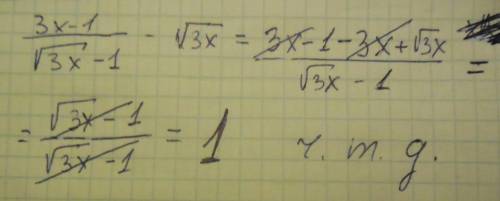 (3x-1)/(√3x -1) - √3x = (3x-1-3x+√3x)/(√3x -1) =
= (√3x -1)/(√3x -1) = 1 ч. т. д.